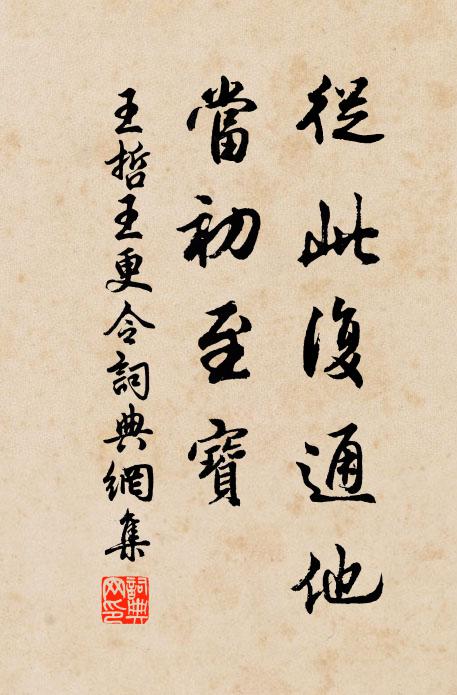 從此復通他
當初至寶
王哲王更令詞典網集
詞典網印